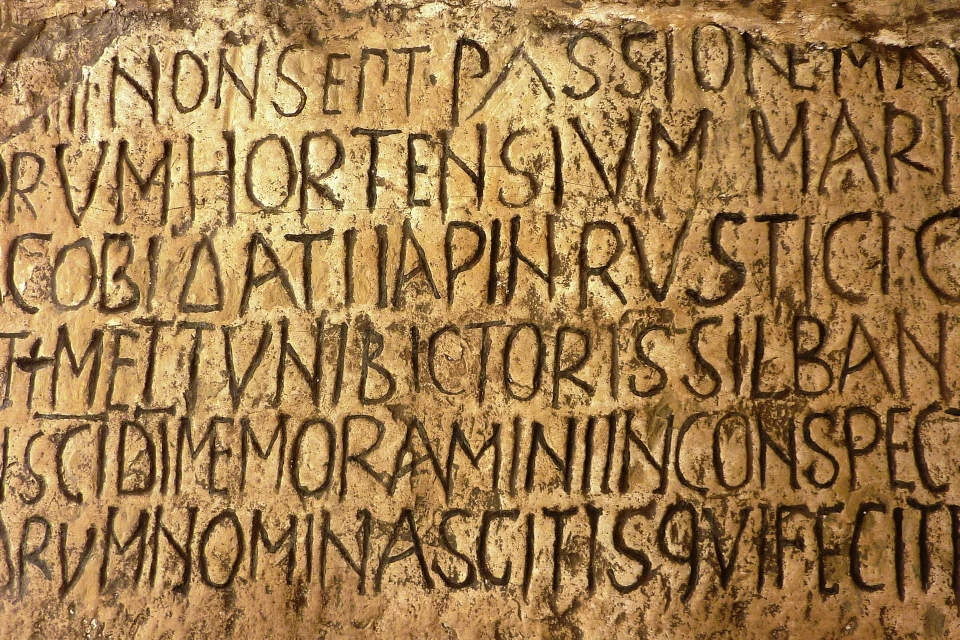 IIII NON SEPT · PASSIONE M
ORVM HORTENSIVM MARI
COBI DATI IAPIN RVSTICI C
T METTVNI BICTORIS SILBAN
SCI DI MEMORAMINI IN CONSPEC
ORVM NOMINA SCITIS QVI FECIT I